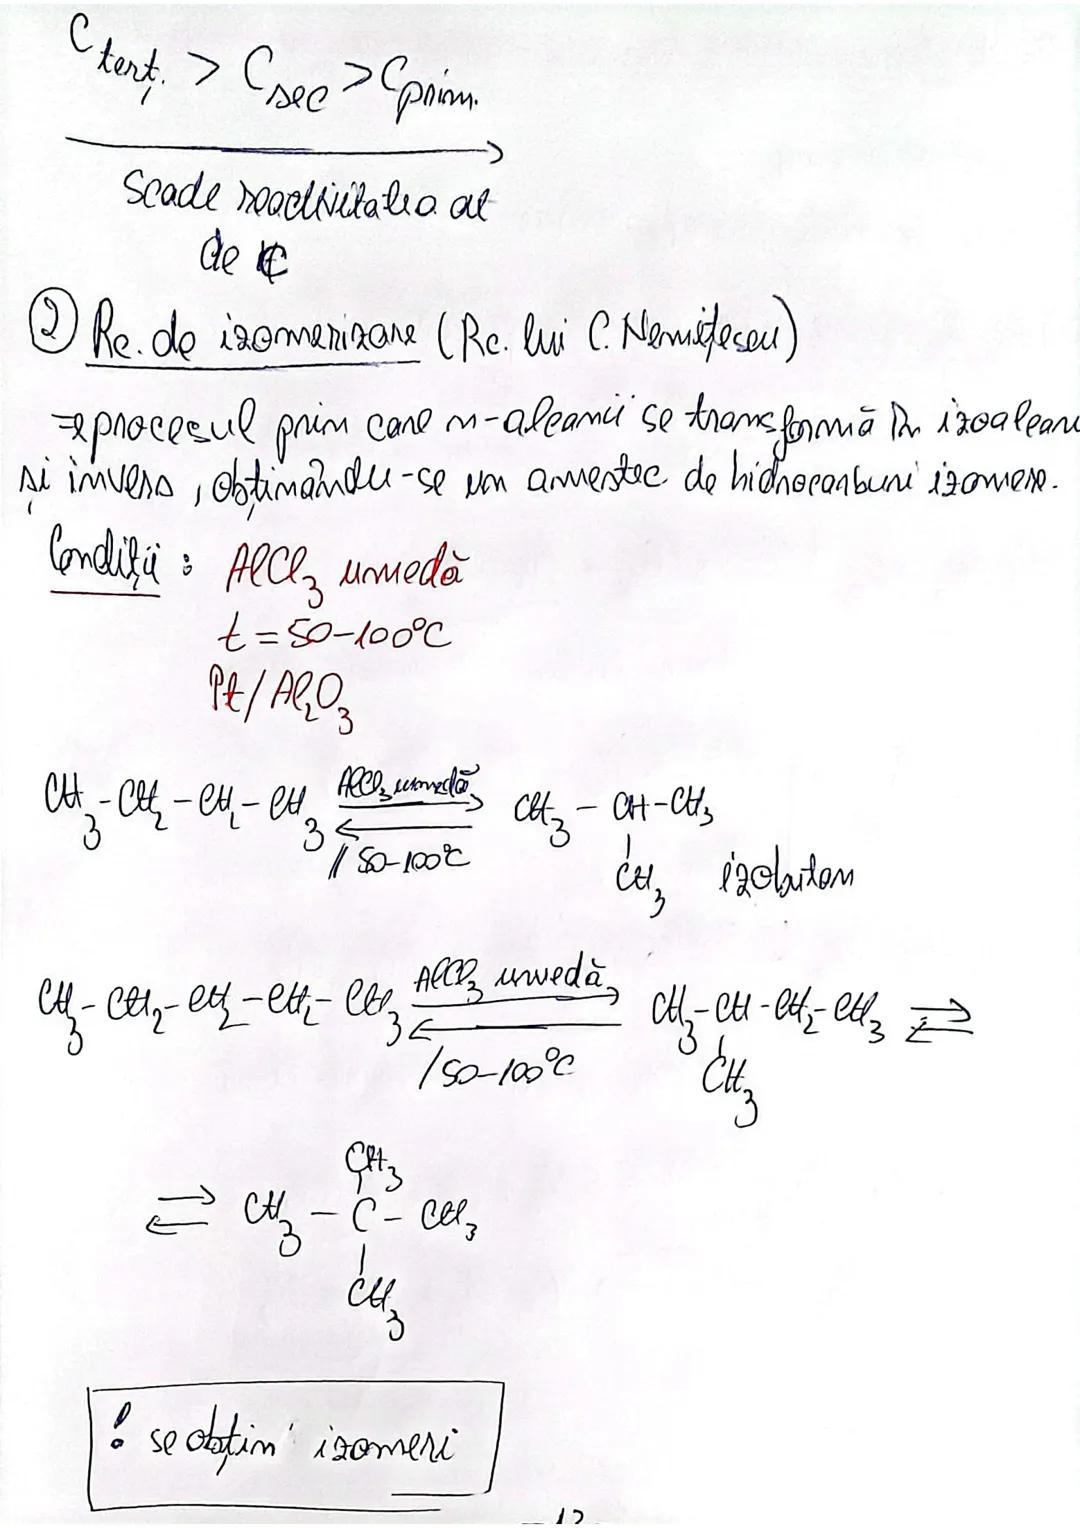 C terț. > C sec > C prim.
Scade reactivitatea at
de C
② Rc. de izomerizare (Rc. lui C. Nenițescu)
→ procesul prin care n-alcanii se transformă în izoalcani
și invers, obținându-se un amestec de hidrocarburi izomere.
Condiții : AlCl₃ umedă
t = 50-100°C
Pt/Al₂O₃
CH₃ - CH₂ - CH₂ - CH₃ ⇌ CH₃ - CH - CH₃
AlCl₃ umedă
/ 50-100°C
CH₃ izobutan
CH₃ - CH₂ - CH₂ - CH₂ - CH₃ ⇌ CH₃ - CH - CH₂ - CH₃ ⇌
AlCl₃ umedă
/ 50-100°C
CH₃
CH₃
⇌ CH₃ - C - CH₃
CH₃
! se obțin izomeri